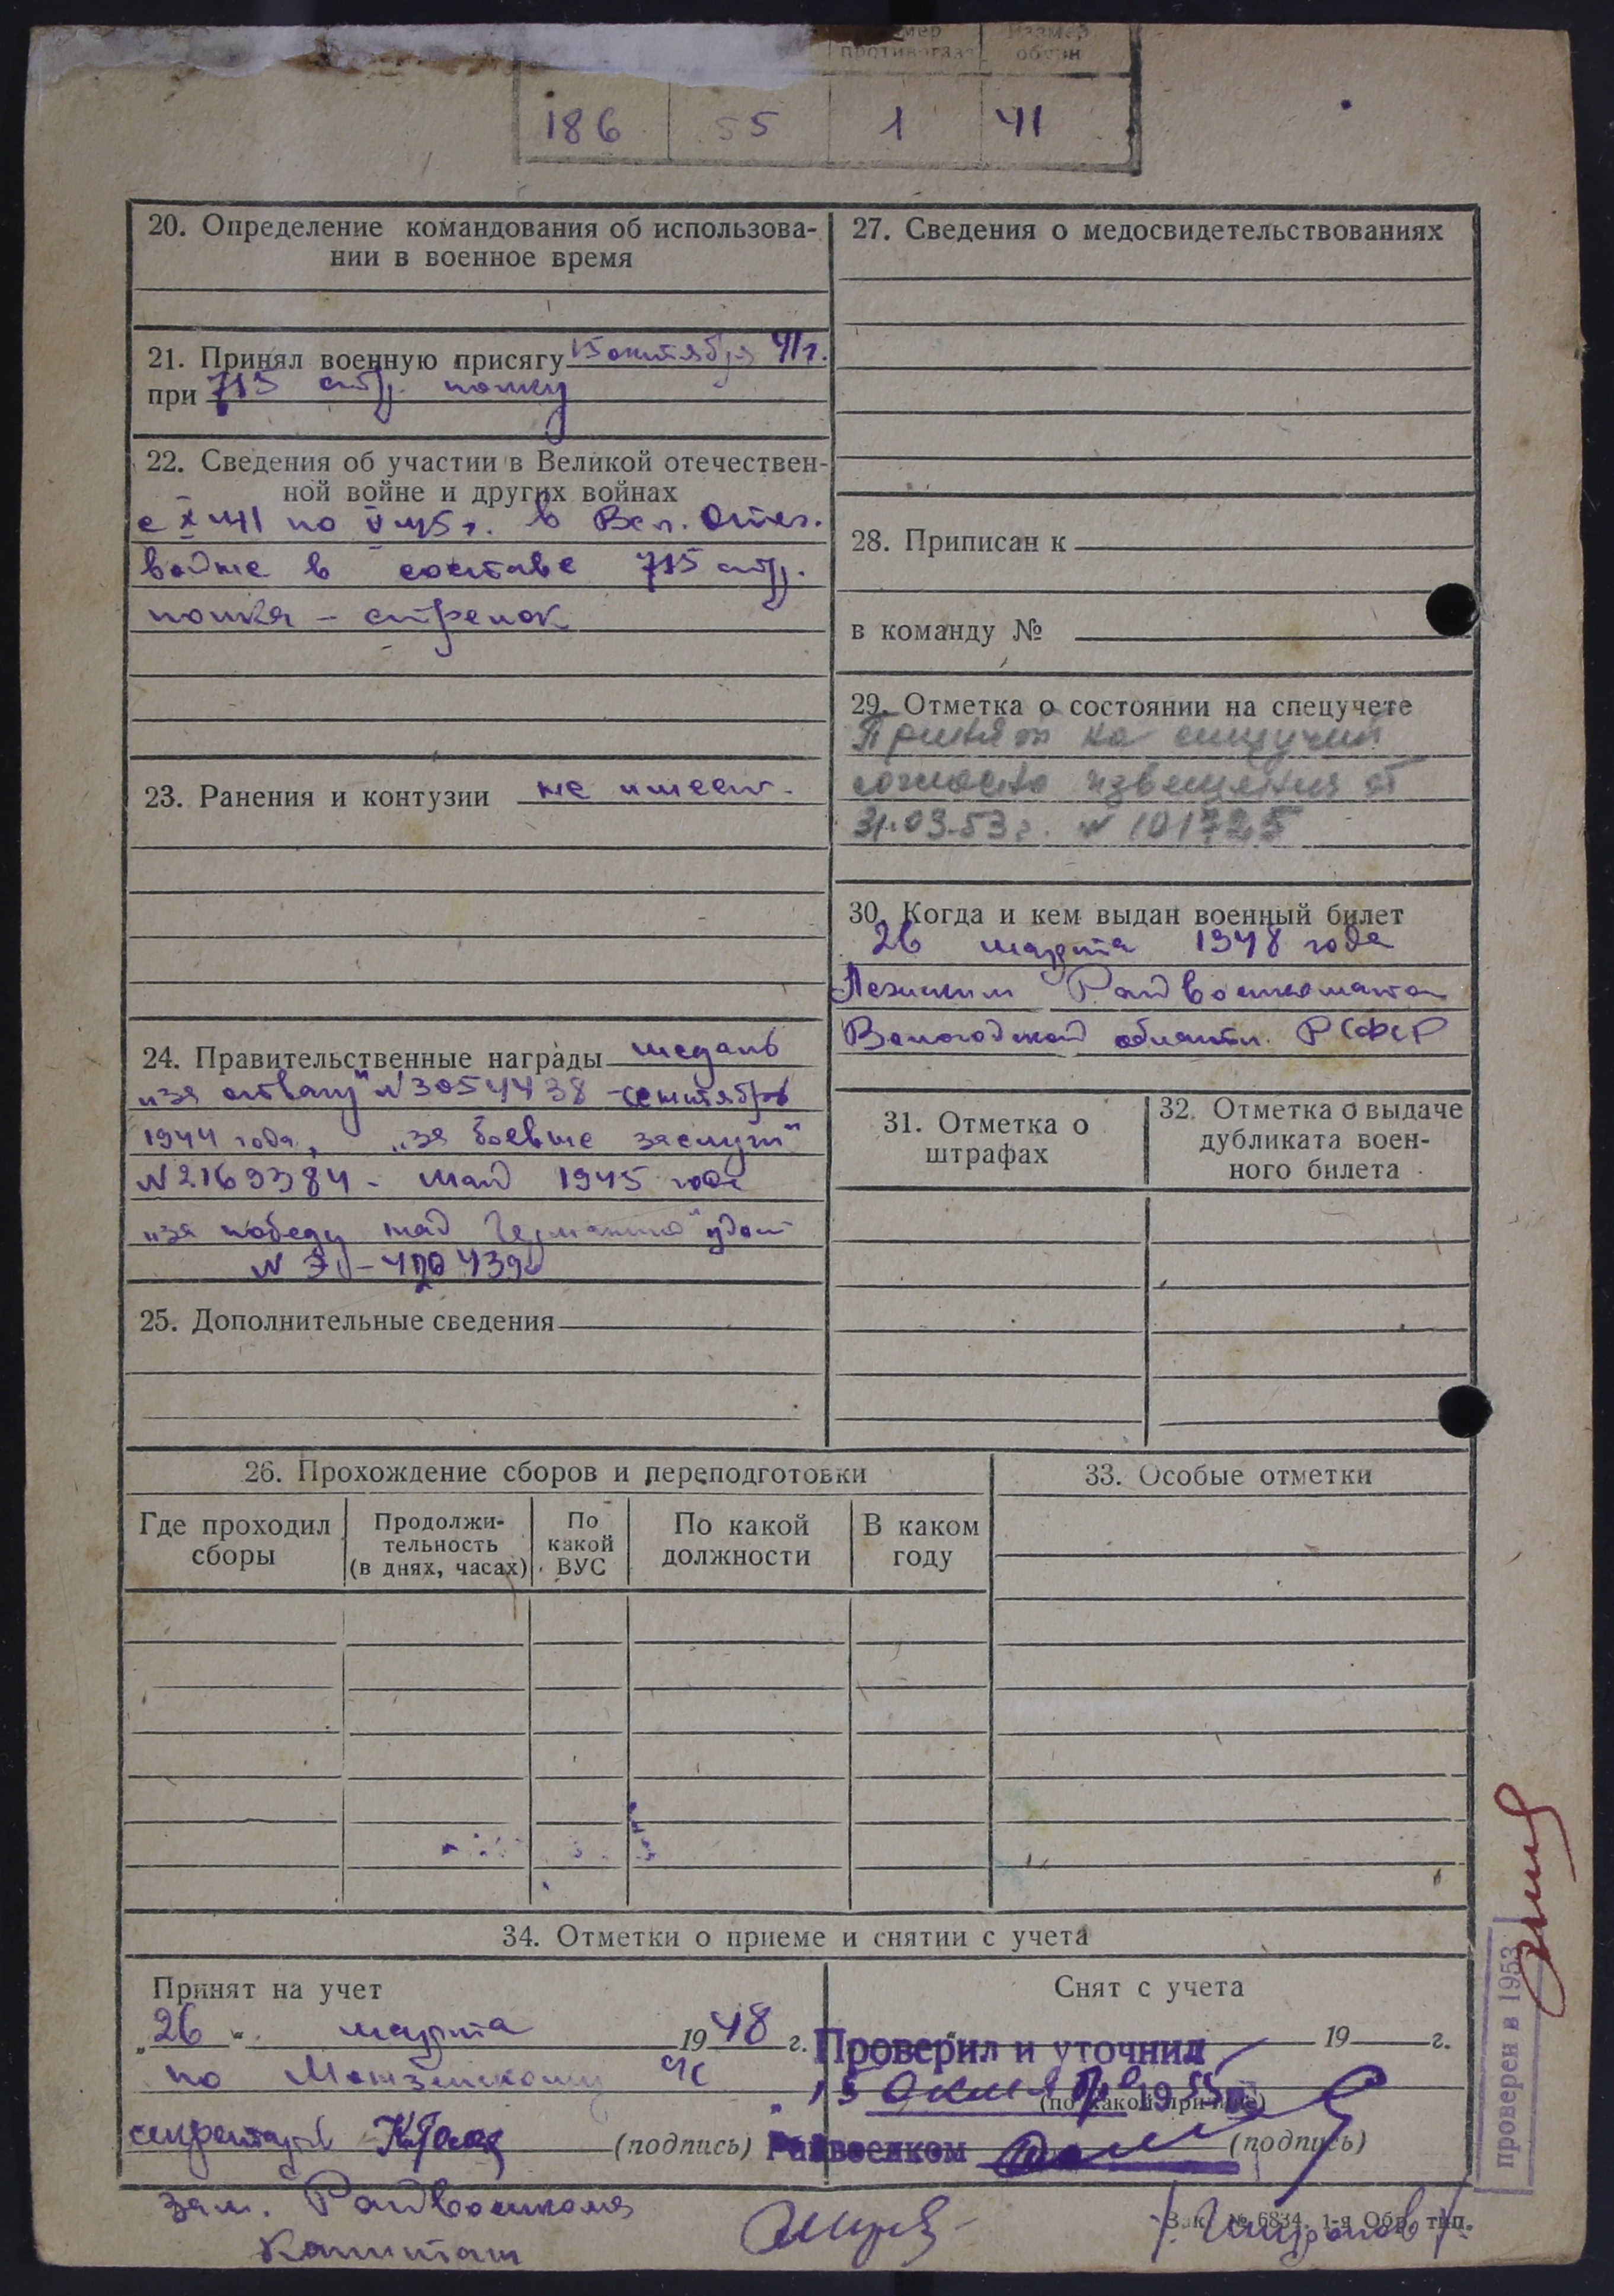 мер
противогаза
Размер
обуви
186 55 1 41
20. Определение командования об использова-
нии в военное время
21. Принял военную присягу 15 октября 41 г.
при 715 стр. полку
22. Сведения об участии в Великой отечествен-
ной войне и других войнах
с X 41 по V 45 г. в Вел. Отеч.
войне в составе 715 стр.
полка – стрелок
23. Ранения и контузии не имеет.
24. Правительственные награды медаль
„за отвагу" №3054438 - сентябрь
1944 года, „за боевые заслуги"
№2169384 - май 1945 года
„за победу над Германией" удост
25. Дополнительные сведения
27. Сведения о медосвидетельствованиях
28. Приписан к
в команду №
29. Отметка о состоянии на спецучете
Принят на спецучет
согласно извещения от
31.03.53 г. № 101725
30. Когда и кем выдан военный билет
26 марта 1948 года
Лежским Райвоенкоматом
Вологодской области РСФСР
31. Отметка о
штрафах
32. Отметка о выдаче
дубликата воен-
ного билета
26. Прохождение сборов и переподготовки
Где проходил
сборы
Продолжи-
тельность
(в днях, часах)
По
какой
ВУС
По какой
должности
В каком
году
33. Особые отметки
34. Отметки о приеме и снятии с учета
Принят на учет
„26" марта 1948 г.
по Монзенскому
секретарь
(подпись)
Снят с учета
19 г.
Проверил и уточнил
„15 октября 1955
(по какой причине)
Райвоенком
(подпись)
зам. Райвоенкома
Капитан
Зак. № 6834. 1-я Обр. тип.
проверен в 1953